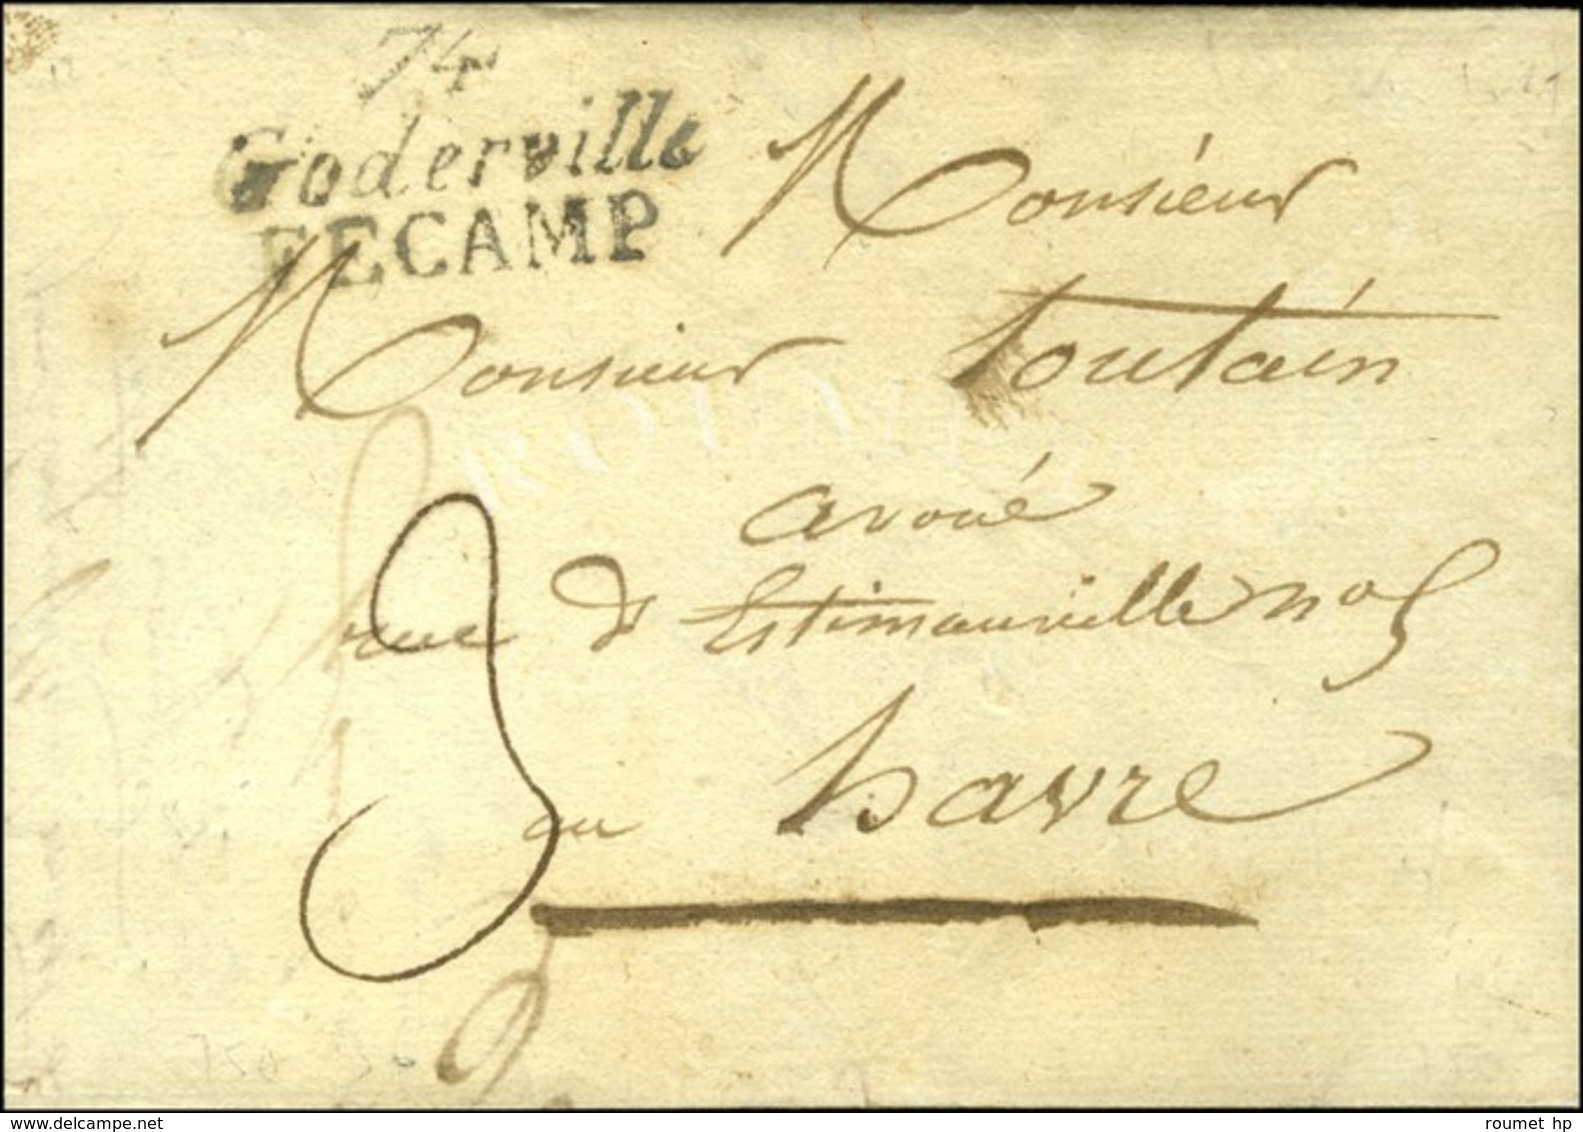 74
Goderville
FECAMP
Monsieur
Monsieur toutain
avoué
rue d'Estimauville no 5
au havre
3
roumet hp